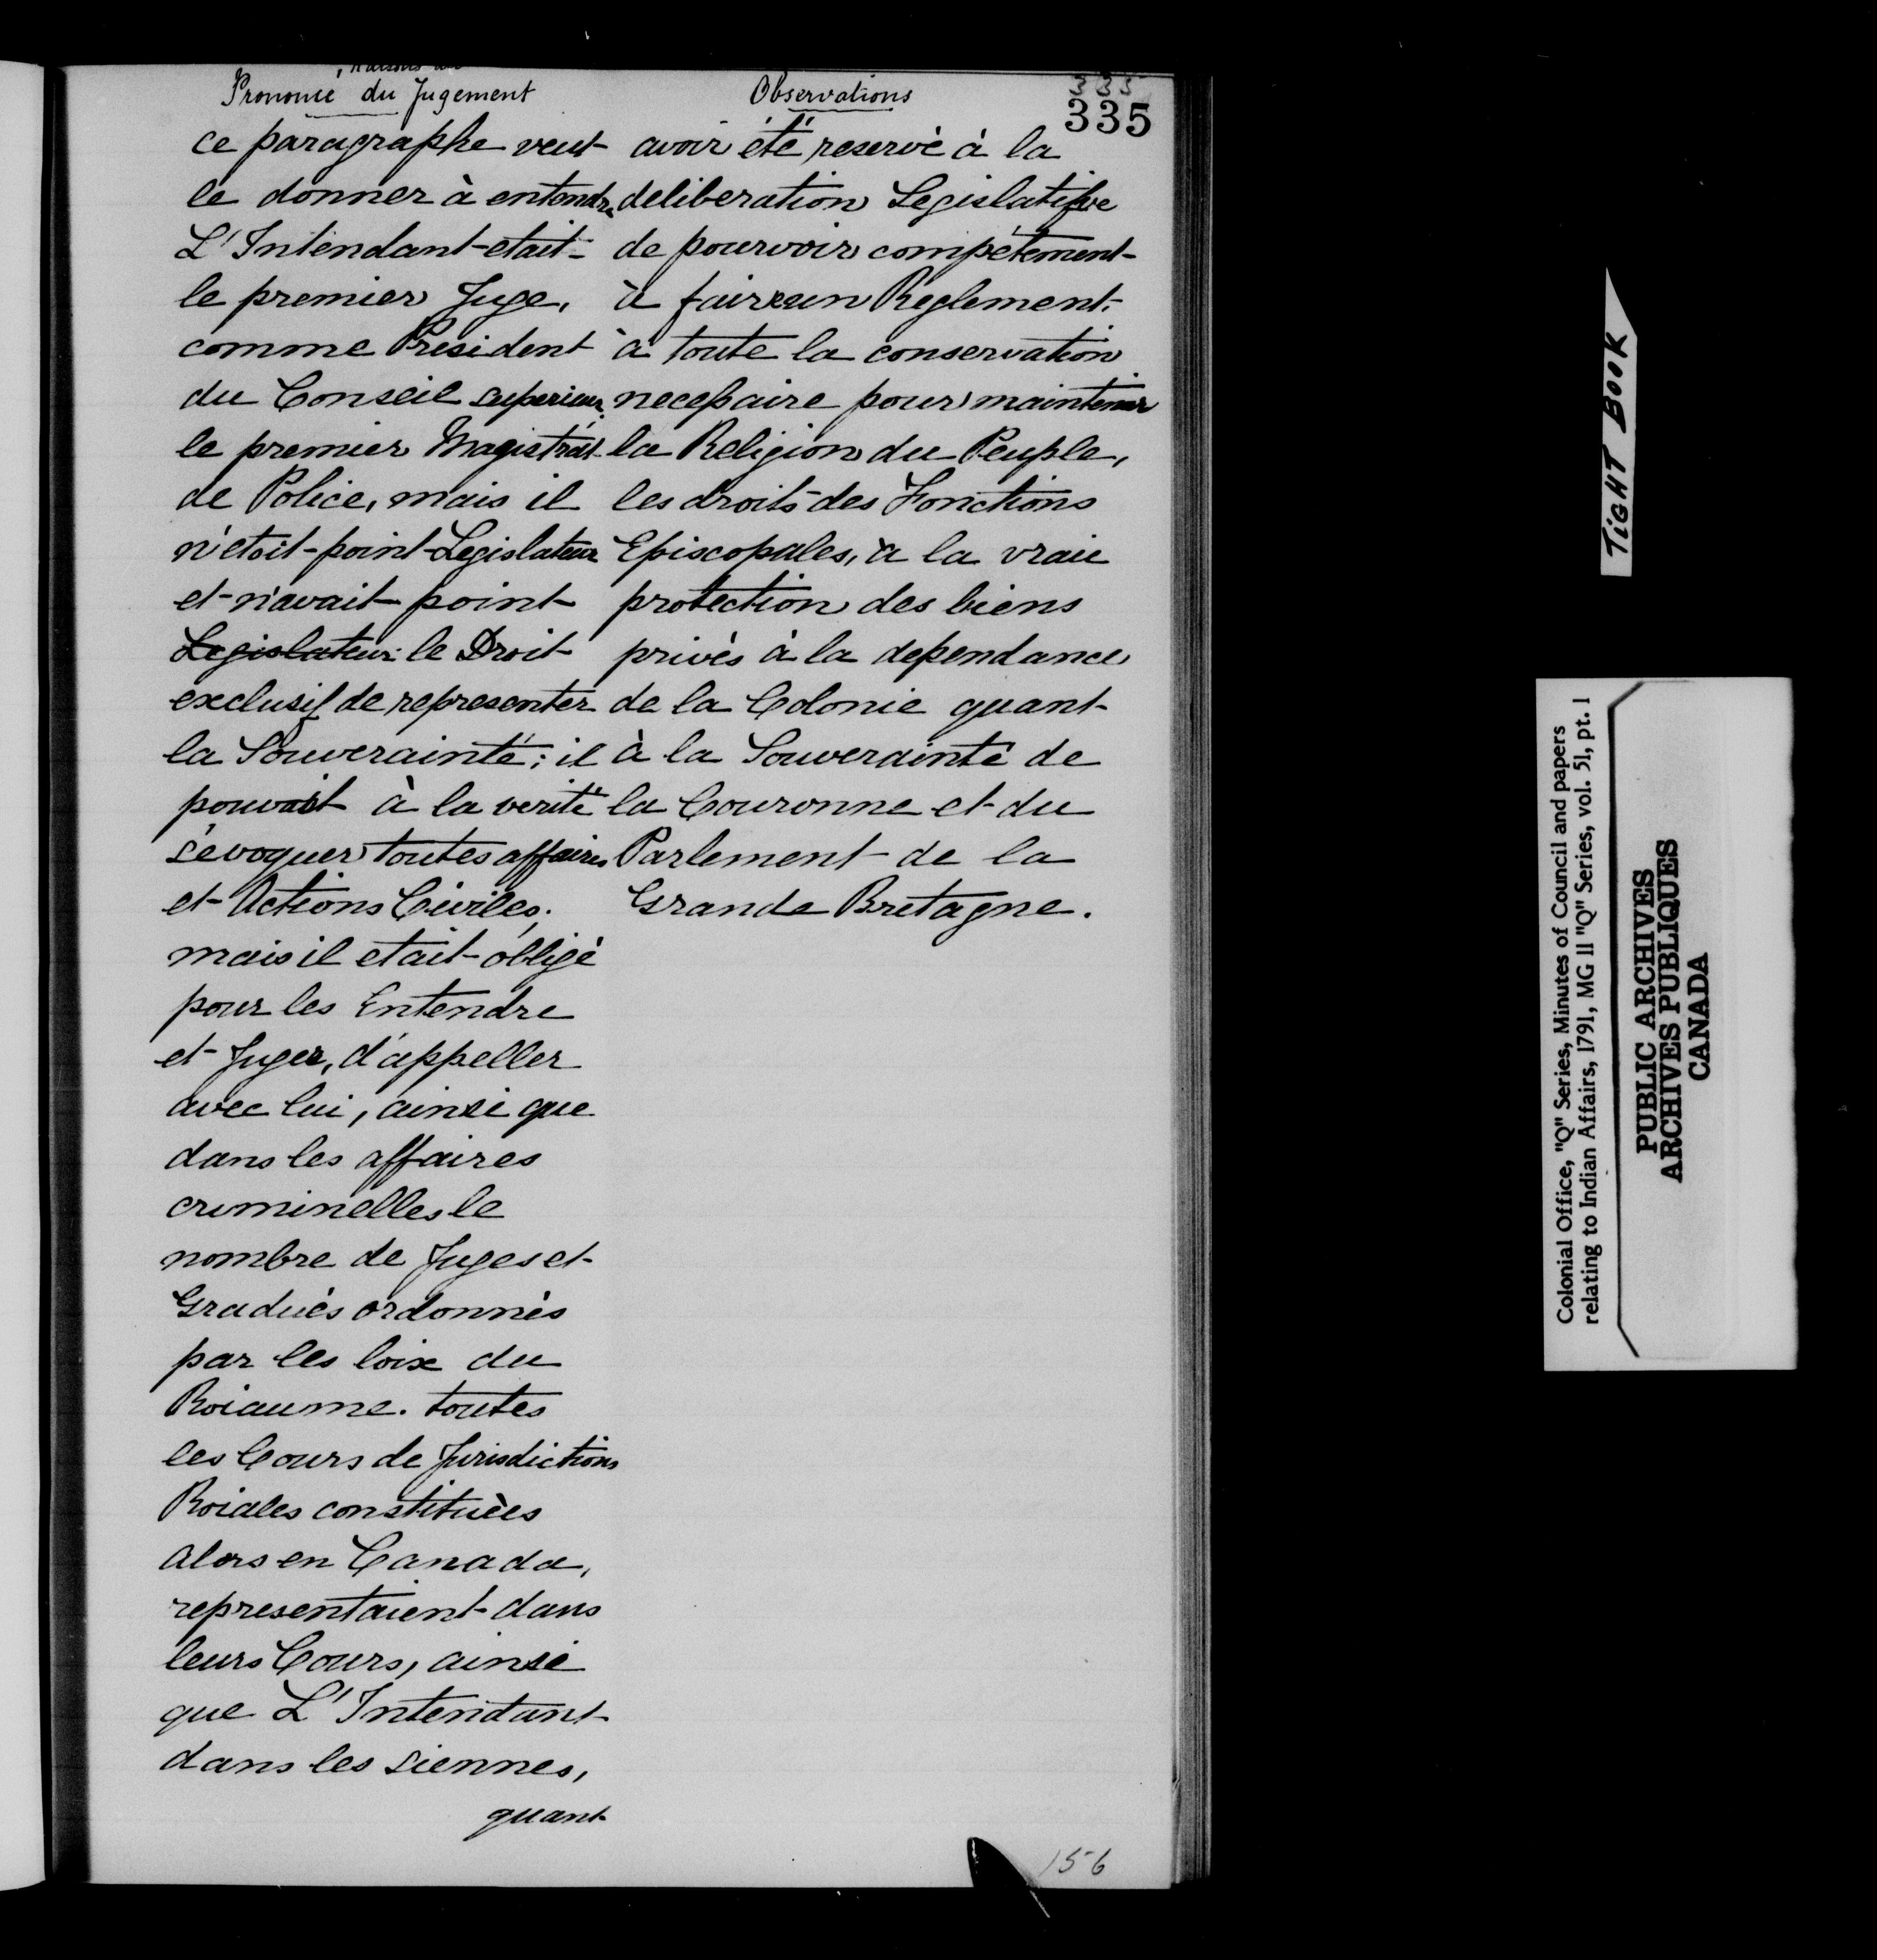 Prononcé du Jugement
ce paragraphe veut
le donner à entendre
L'Intendant etait
le premier Juge,
comme President
du Conseil superieur,
le premier Magistrat
de Police, mais il
n'étoit point Legislateur
et n'avait point
Legislateur le Droit
exclusif de representer
la Souverainté; il
pouvait à la verité
s'évoquer toutes affaires
et Actions Civiles;
mais il etait obligé
pour les Entendre
et Juger, d'appeller
avec lui, ainsi que
dans les affaires
criminelles le
nombre de Juges et
Gradués ordonnés
par les loix du
Roiaume. toutes
les Cours de Jurisdictions
Roiales constituées
alors en Canada,
representaient dans
leurs Cours, ainsi
que L'Intendant
dans les siennes,
quant
Observations
335
335
avoir été reservé à la
deliberation Legislative
de pourvoir compétement
à faire un Reglement
à toute la conservation
necessaire pour maintenir
la Religion du Peuple,
les droits des Fonctions
Episcopales, à la vraie
protection des biens
privés à la dependance
de la Colonie quant
à la Souverainté de
la Couronne et du
Parlement de la
Grande Bretagne.
156
TIGHT BOOK
Colonial Office, "Q" Series, Minutes of Council and papers
relating to Indian Affairs, 1791, MG 11 "Q" Series, vol. 51, pt. 1
PUBLIC ARCHIVES
ARCHIVES PUBLIQUES
CANADA